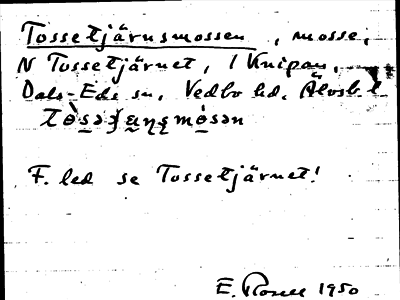 Tossetjärnsmossen, mosse,
N Tossetjärnet, i Knipan,
Dals-Eds sn, Vedbo hd, Älvsb. l
F. led se Tossetjärnet!
E. Rosell 1950